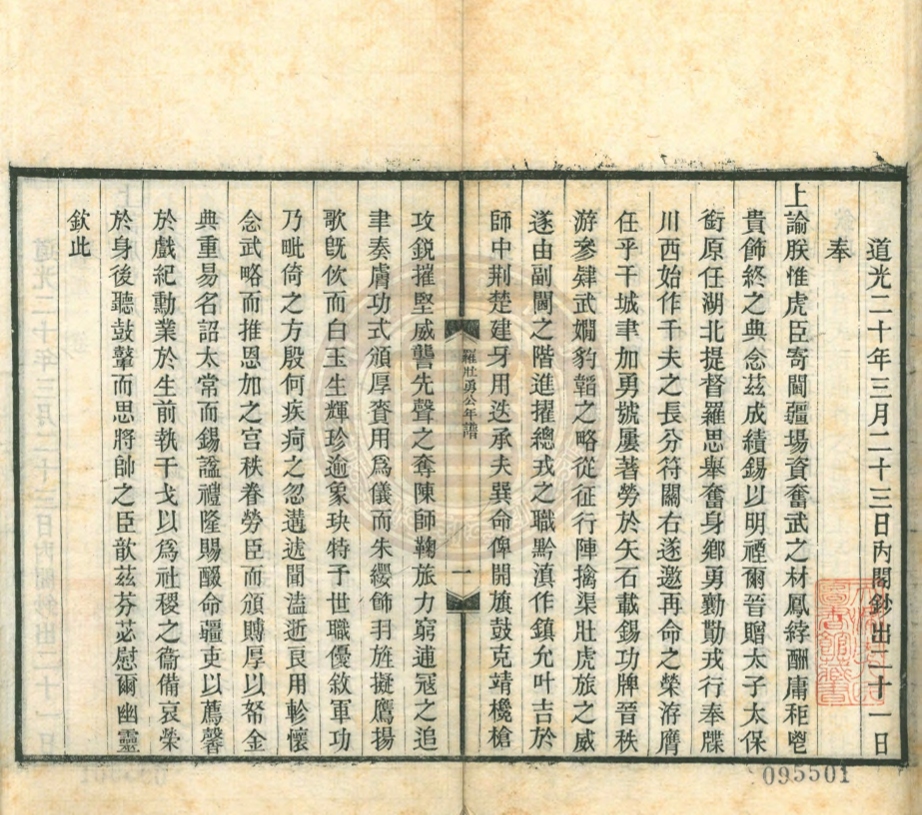 道光二十年三月二十三日內閣鈔出二十一日
奉
上諭朕惟虎臣寄閫疆場資奮武之材鳳綍酬庸秬鬯
貴飾終之典念茲成績錫以明禋爾晉贈太子太保
銜原任湖北提督羅思舉奮身鄉勇勷勩戎行奉牒
川西始作千夫之長分符關右遂邀再命之榮洊膺
任乎干城聿加勇號屢著勞於矢石載錫功牌晉秩
游參肄武嫺豹韜之略從征行陣擒渠壯虎旅之威
遂由副閫之階進擢總戎之職黔滇作鎮允叶吉於
師中荆楚建牙用迭承夫巽命俾開旗鼓克靖欃槍
羅壯勇公年譜
一
攻銳摧堅威讋先聲之奪陳師鞠旅力窮逋寇之追
聿奏膚功式頒厚賚用爲儀而朱纓飾羽旌擬鷹揚
歌旣佽而白玉生輝珍逾象玦特予世職優敘軍功
乃毗倚之方殷何疾疴之忽遘遽聞溘逝良用軫懷
念武略而推恩加之宫秩眷勞臣而頒賻厚以帑金
典重易名詔太常而錫諡禮隆賜醊命疆吏以薦馨
於戲紀勳業於生前執干戈以爲社稷之衞備哀榮
於身後聽鼓鼙而思將帥之臣歆茲芬苾慰爾幽靈
欽此
095501